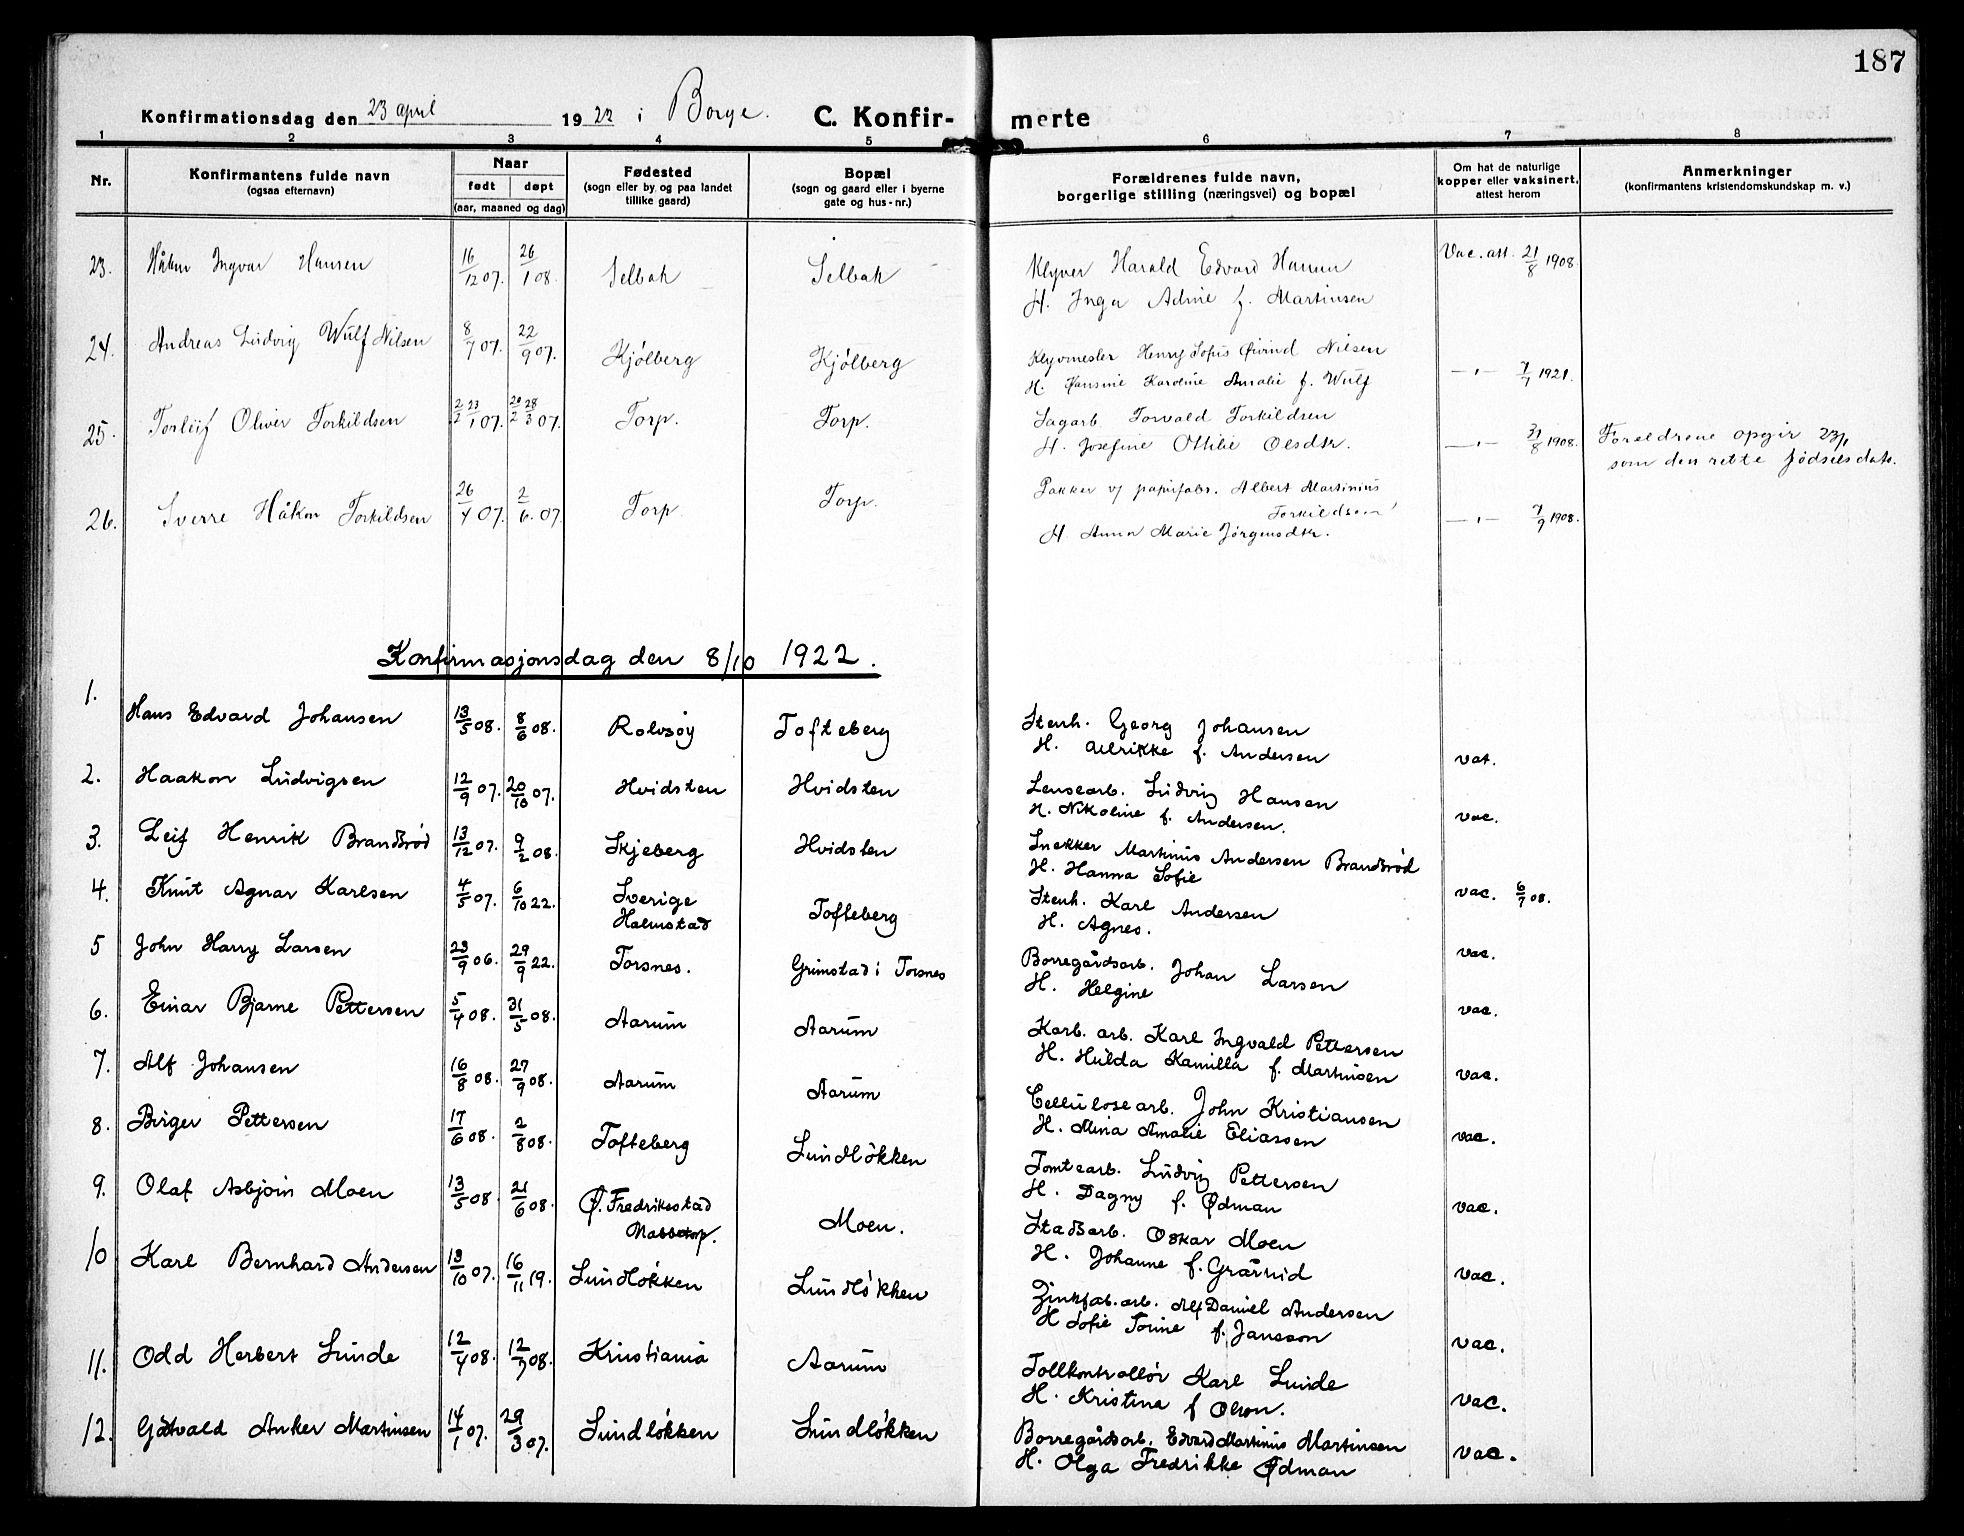 187
Konfirmationsdag den 23 april 1922 i Borge. C. Konfir- merte
1 2 3 4 5 6 7 8
Nr. Konfirmantens fulde navn (ogsaa efternavn) Naar født døpt (aar, maaned og dag) Fødested (sogn eller by og paa landet tillike gaard) Bopæl (sogn og gaard eller i byerne gate og hus-nr.) Forældrenes fulde navn, borgerlige stilling (næringsvei) og bopæl Om hat de naturlige kopper eller vaksinert, attest herom Anmerkninger (konfirmantens kristendomskundskap m. v.)
23. Håkon Ingvar Hansen 16/12 07. 26/1 08. Selbak Selbak Klyver Harald Edvard Hansen Vac. att. 21/8 1908.
H. Inga Adine f. Martinsen
24. Andreas Ludvig Wulf Nilsen 8/7 07. 22/9 07. Kjölberg Kjölberg Klyvmester Henry Sofus Øivind Nilsen
H. Hansine Karoline Amalie f. Wulf —"— 7/7 1921.
25. Torleif Oliver Torkildsen 2/2 23/1 07. 28/3 07. Torp. Torp. Sagarb Torvald Torkildsen
H. Josefine Ottilie Olsdtr. —"— 31/8 1908. Foreldrene opgir 23/1
som den rette fødselsdato.
26. Sverre Håkon Torkildsen 26/4 07. 2/6. 07. Torp Torp. Pakker v/ papirfabr. Albert Martinius
Torkildsen —"— 7/9 1908.
H. Anna Marie Jörgensdtr.
Konfirmasjonsdag den 8/10 1922.
1. Hans Edvard Johansen 13/5 08. 8/6 08. Rolvsøy Tofteberg Stenh. Georg Johansen
H. Ulrikke f. Andersen vat.
2. Haakon Ludvigsen 12/9 07. 20/10 07. Hvidsten Hvidsten Lensearb. Ludvig Hansen
H. Nikoline f. Andersen. vac.
3. Leif Henrik Brandsrød 13/12 07. 9/2 08. Skjeberg Hvidsten Snekker Martinius Andersen Brandsrød
H. Hanna Sofie vac. 6/7 08.
4. Knut Agnar Karlsen 4/5 07. 6/10 22. Sverige Halmstad Tofteberg Stenh. Karl Andersen
H. Agnes. vac.
5 John Harry Larsen 23/9 06. 29/9 22. Torsnes. Grimstad i Torsnes Borregårdsarb. Johan Larsen
H. Helgine vac.
6. Einar Bjarne Pettersen 5/4 08. 31/5 08. Aarum Aarum Karb. arb. Karl Ingvald Pettersen
H. Hulda Kamilla f. Martinsen vac.
7. Alf Johansen 16/8 08. 27/9 08. Aarum Aarum Cellulosearb. John Kristiansen
H. Mina Amalie Eliassen vac.
8. Birger Pettersen 17/6 08. 2/8 08. Tofteberg Lundløkken Tomtearb. Ludvig Pettersen
H. Dagny f. Ødman vac.
9. Olaf Asbjørn Moen 13/5 08. 21/6 08. Ø. Fredrikstad Moen. Stadsarb. Oskar Moen
H. Johanne f. Gråvnid vac.
10 Karl Bernhard Andersen 13/10 07. 16/11 19. Lundløkken Lundløkken Zinkfab.arb. Alf Daniel Andersen
H Sofie Torine f. Jansson vac.
11. Odd Herbert Lunde 12/4 08. 12/7 08. Kristiania Aarum Tollkontrollør Karl Lunde
H. Kristina f Olson. vac.
12. Gotvald Anker Martinsen 14/1 07. 29/3 07. Lundløkken Lundløkken Borregårdsarb. Edvard Martinius Martinsen
H. Olga Fredrikke Ødman vac.